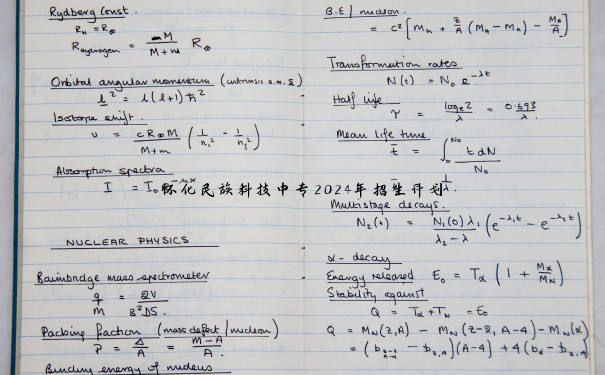 Rydberg Const.
R_H = R_∞
R_Hydrogen = M / (M + m) R_∞
Orbital angular momentum (intrinsic a.m. s)
l² = l(l+1)ħ²
Isotope shift.
υ = cR_∞M / (M+m) (1/n₁² - 1/n₂²)
Absorption spectra
I = I₀ e^(-μx)
怀化民族科技中专2024年招生计划
NUCLEAR PHYSICS
Bainbridge mass spectrometer
q/m = 2V / B²DS.
Packing fraction (mass defect / nucleon)
P = Δ/A = (M-A)/A.
Binding energy of nucleus
B.E / nucleon.
= c² [M_n + Z/A (M_H - M_n) - M_A/A]
Transformation rates
N(t) = N₀ e^(-λt)
Half Life
τ = log_e 2 / λ = 0.693 / λ.
Mean life time
t̄ = ∫₀^N₀ t dN / N₀
= 1/λ.
Multistage decays.
N₂(t) = N₁(0) λ₁ / (λ₂ - λ) (e^(-λ₁t) - e^(-λ₂t))
α - decay
Energy released E₀ = T_α (1 + M_α/M_N)
Stability against
Q = T_α + T_N = E₀
Q = M_N(Z,A) - M_N(Z-2, A-4) - M_N(α)
= (b_(Z-2,A-4) - b_(Z,A))(A-4) + 4(b_α - b_(Z,A)